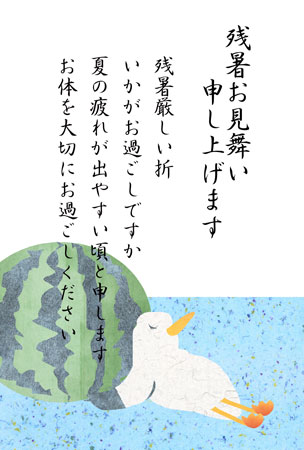 残暑お見舞い
申し上げます
残暑厳しい折
いかがお過ごしですか
夏の疲れが出やすい頃と申します
お体を大切にお過ごしください